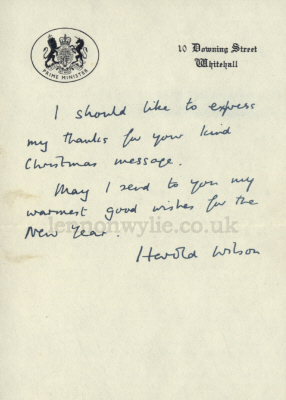 PRIME MINISTER
10 Downing Street
Whitehall
I should like to express
my thanks for your kind
Christmas message.
May I send to you my
warmest good wishes for the
New Year.
lennonwylie.co.uk
Harold Wilson